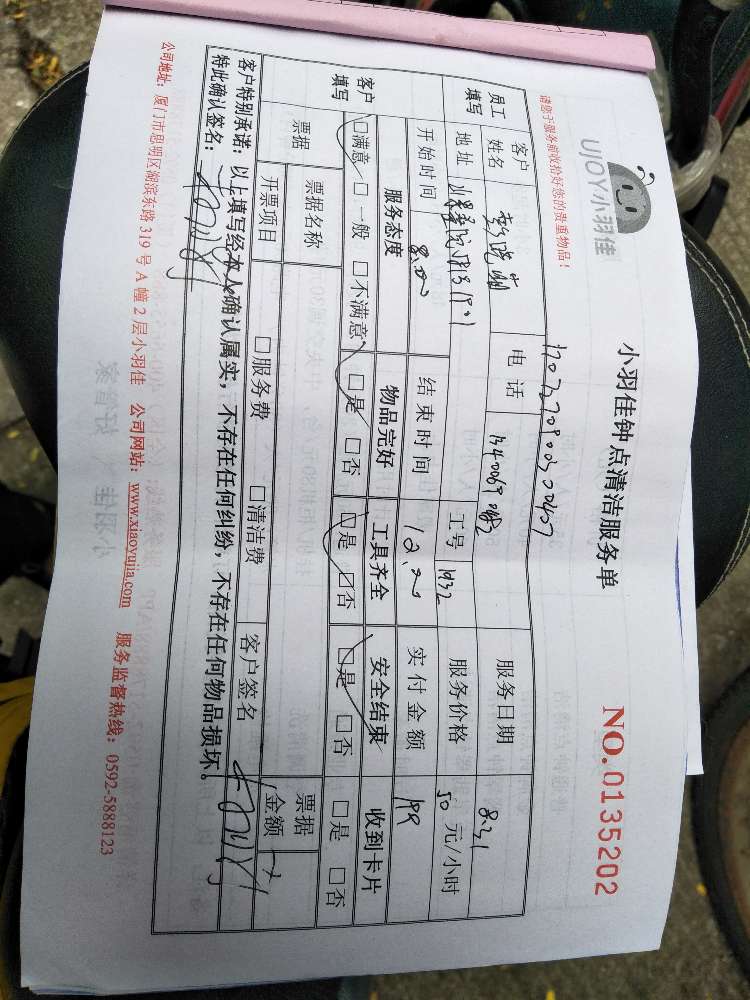 UJOY小羽佳
小羽佳钟点清洁服务单
NO.0135202
请您于服务前收拾好您的贵重物品!
员工填写
客户姓名
电话
服务日期 8.31
地址
工号 1932
服务价格 50 元/小时
开始时间 8:00
结束时间 12:00
实付金额 199
客户填写
服务态度 物品完好 工具齐全 安全结束 收到卡片
□满意 □一般 □不满意 □是 □否 □是 □否 □是 □否 □是 □否
票据
票据名称
票据金额
开票项目 □服务费 □清洁费 客户签名
客户特别承诺:以上填写经本人确认属实,不存在任何纠纷,不存在任何物品损坏。
特此确认签名:
公司地址:厦门市思明区湖滨东路 319 号 A 幢 2 层小羽佳 公司网站:www.xiaoyujia.com 服务监督热线:0592-5888123